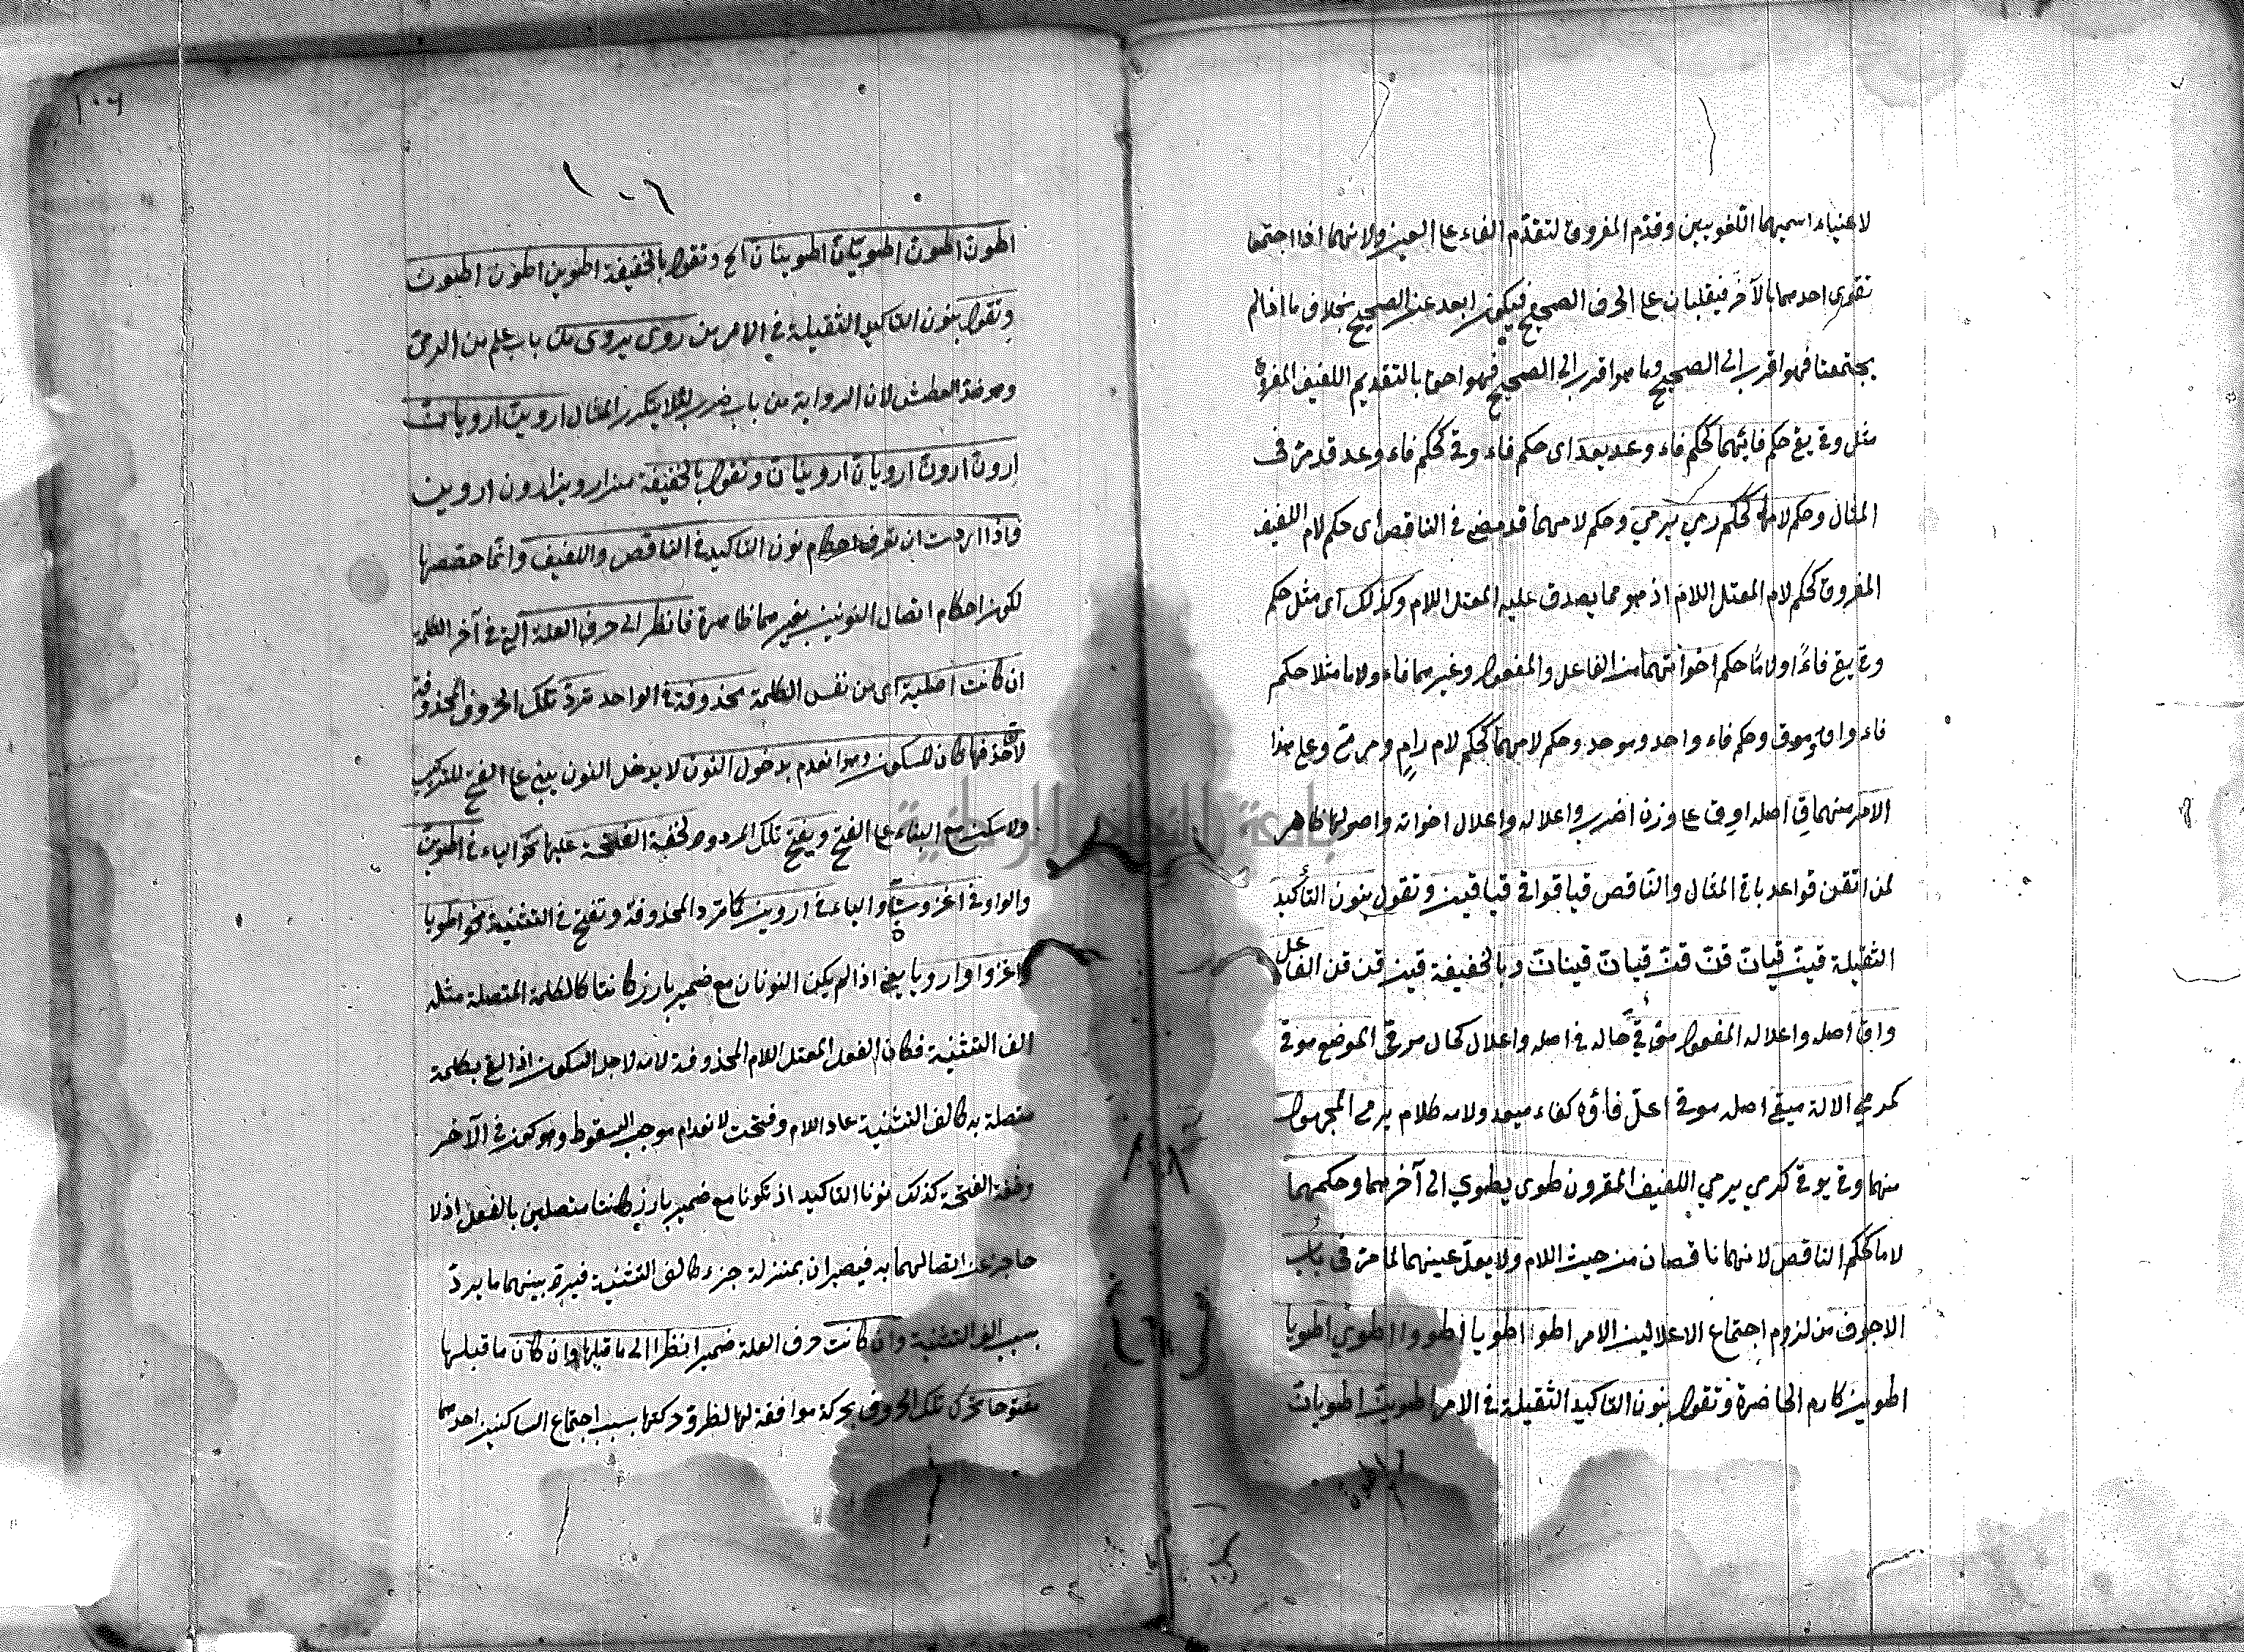 لاعنياء اسميهما اللغويين وقدم المفروق لتقدم الفاء على العين ولانهما اذا اجتمعا
تقوى احدهما بالآخر فيقلبان على الحرف الصحيح فيكون ابعد عن الصحيح بخلاف ما اذا لم
يجتمعا فهو اقرب الى الصحيح وما هو اقرب الى الصحيح فهو احق بالتقديم اللفيف المفروق
مثل وقى يقي حكم فائهما كحكم فاء وعد يعد اى حكم فاء وقى كحكم فاء وعد قد مر فى
المثال وحكم لامها كحكم رمي يرمي وحكم لامهما قد مضى في الناقص اى حكم لام اللفيف
المفروق كحكم لام المعتل اللام اذ هو مما يصدق عليه المعتل اللام وكذلك اى مثل حكم
وقى يقي فاءً ولامًا حكم اخواتهما من الفاعل والمفعول وغيرهما فاء ولاما مثلا حكم
فاء واق وموق وحكم فاء واحد وموحد وحكم لامهما كحكم لام رامٍ ومرمي وعلى هذا
الامر منهما قِ اصله اوقى على وزن اضرب واعلاله واعلال اخواته واصولها ظاهر
لمن اتقن قواعد باقي المثال والناقص قيا قوا قي قيا قين وتقول بنون التأكيد
الثقيلة قينّ قيانّ قنّ قنّ قيانّ قينانّ وبالخفيفة قين قن قن الفاعل
واقٍ اصله واعلاله المفعول موقي حاله في اصله واعلال كحال مرمي الموضع موقى
كمرمي الالة ميقى اصله موقى اعل فاؤه كفاء ميعد ولامه كلام يرمى المجهول
منهما وقى يوقى كرمي يرمي اللفيف المقرون طوى يطوي الى آخرهما وحكمهما
لاما كحكم الناقص لانهما ناقصان من حيث اللام ولا يعل عينهما لما مر فى باب
الاجوف من لزوم اجتماع الاعلالين الامر اطو اطويا اطووا اطوي اطويا
اطوين كارم الحاضرة وتقول بنون التاكيد الثقيلة في الامر اطوينّ اطويانّ
١٠٦
١٠٦
اطونّ اطونّ اطويانّ اطوينانّ الخ وتقول بالخفيفة اطوين اطون اطون
وتقول بنون التاكيد الثقيلة في الامر من روى يروى من باب علم من الرى
وهو ضد العطش لان الرواية من باب ضرب لئلا يتكرر المثال اروينّ ارويانّ
ارونّ ارونّ ارويانّ اروينانّ وتقول بالخفيفة منه اروين ارون اروين
فاذا اردت ان تعرف احكام نون التاكيد في الناقص واللفيف وانما خصصها
لكون احكام اتصال النونين بغيرهما ظاهرة فانظر الى حرف العلة التي في آخر الكلمة
ان كانت اصلية اى من نفس الكلمة محذوفة في الواحد ترد تلك الحروف المحذوفة
لان حذفها كان للسكون وهو انعدم بدخول النون لا يدخل النون يبنى على الفتح للتركيب
ولا سكن مع البناء على الفتح ويفتح تلك المردود لخفية الفتحة عليها نحو الياء في اطوينّ
والواو في اغزونّ والياء في اروينّ كما ترد المحذوفة وتفتح في التثنية نحو اطويا
واغزوا وارويا يعني اذا لم يكن النونان مع ضمير بارز كانتا كالكلمة المتصلة مثله
الف التثنية فكان الفعل المعتل اللام المحذوفة لامه لاجل السكون اذا لقى بكلمة
متصلة به كالف التثنية عاد اللام وفتحت لانعدام موجب السقوط وهو كون في الآخر
وخفة الفتحة كذلك نونا التاكيد اذ تكونا مع ضمير بارز كانتا متصلين بالفعل اذ لا
حاجز عن اتصالهما به فيصيران بمنزلة جزء كالف التثنية فيرد بينهما ما يرد
بسبب الف التثنية وان كانت حرف العلة ضميرا ينظر الى ما قبلها وان كان ما قبلها
مفتوحا تحرك تلك الحروف بحركة موافقة لها لطرو حركتها بسبب اجتماع الساكنين احدهما